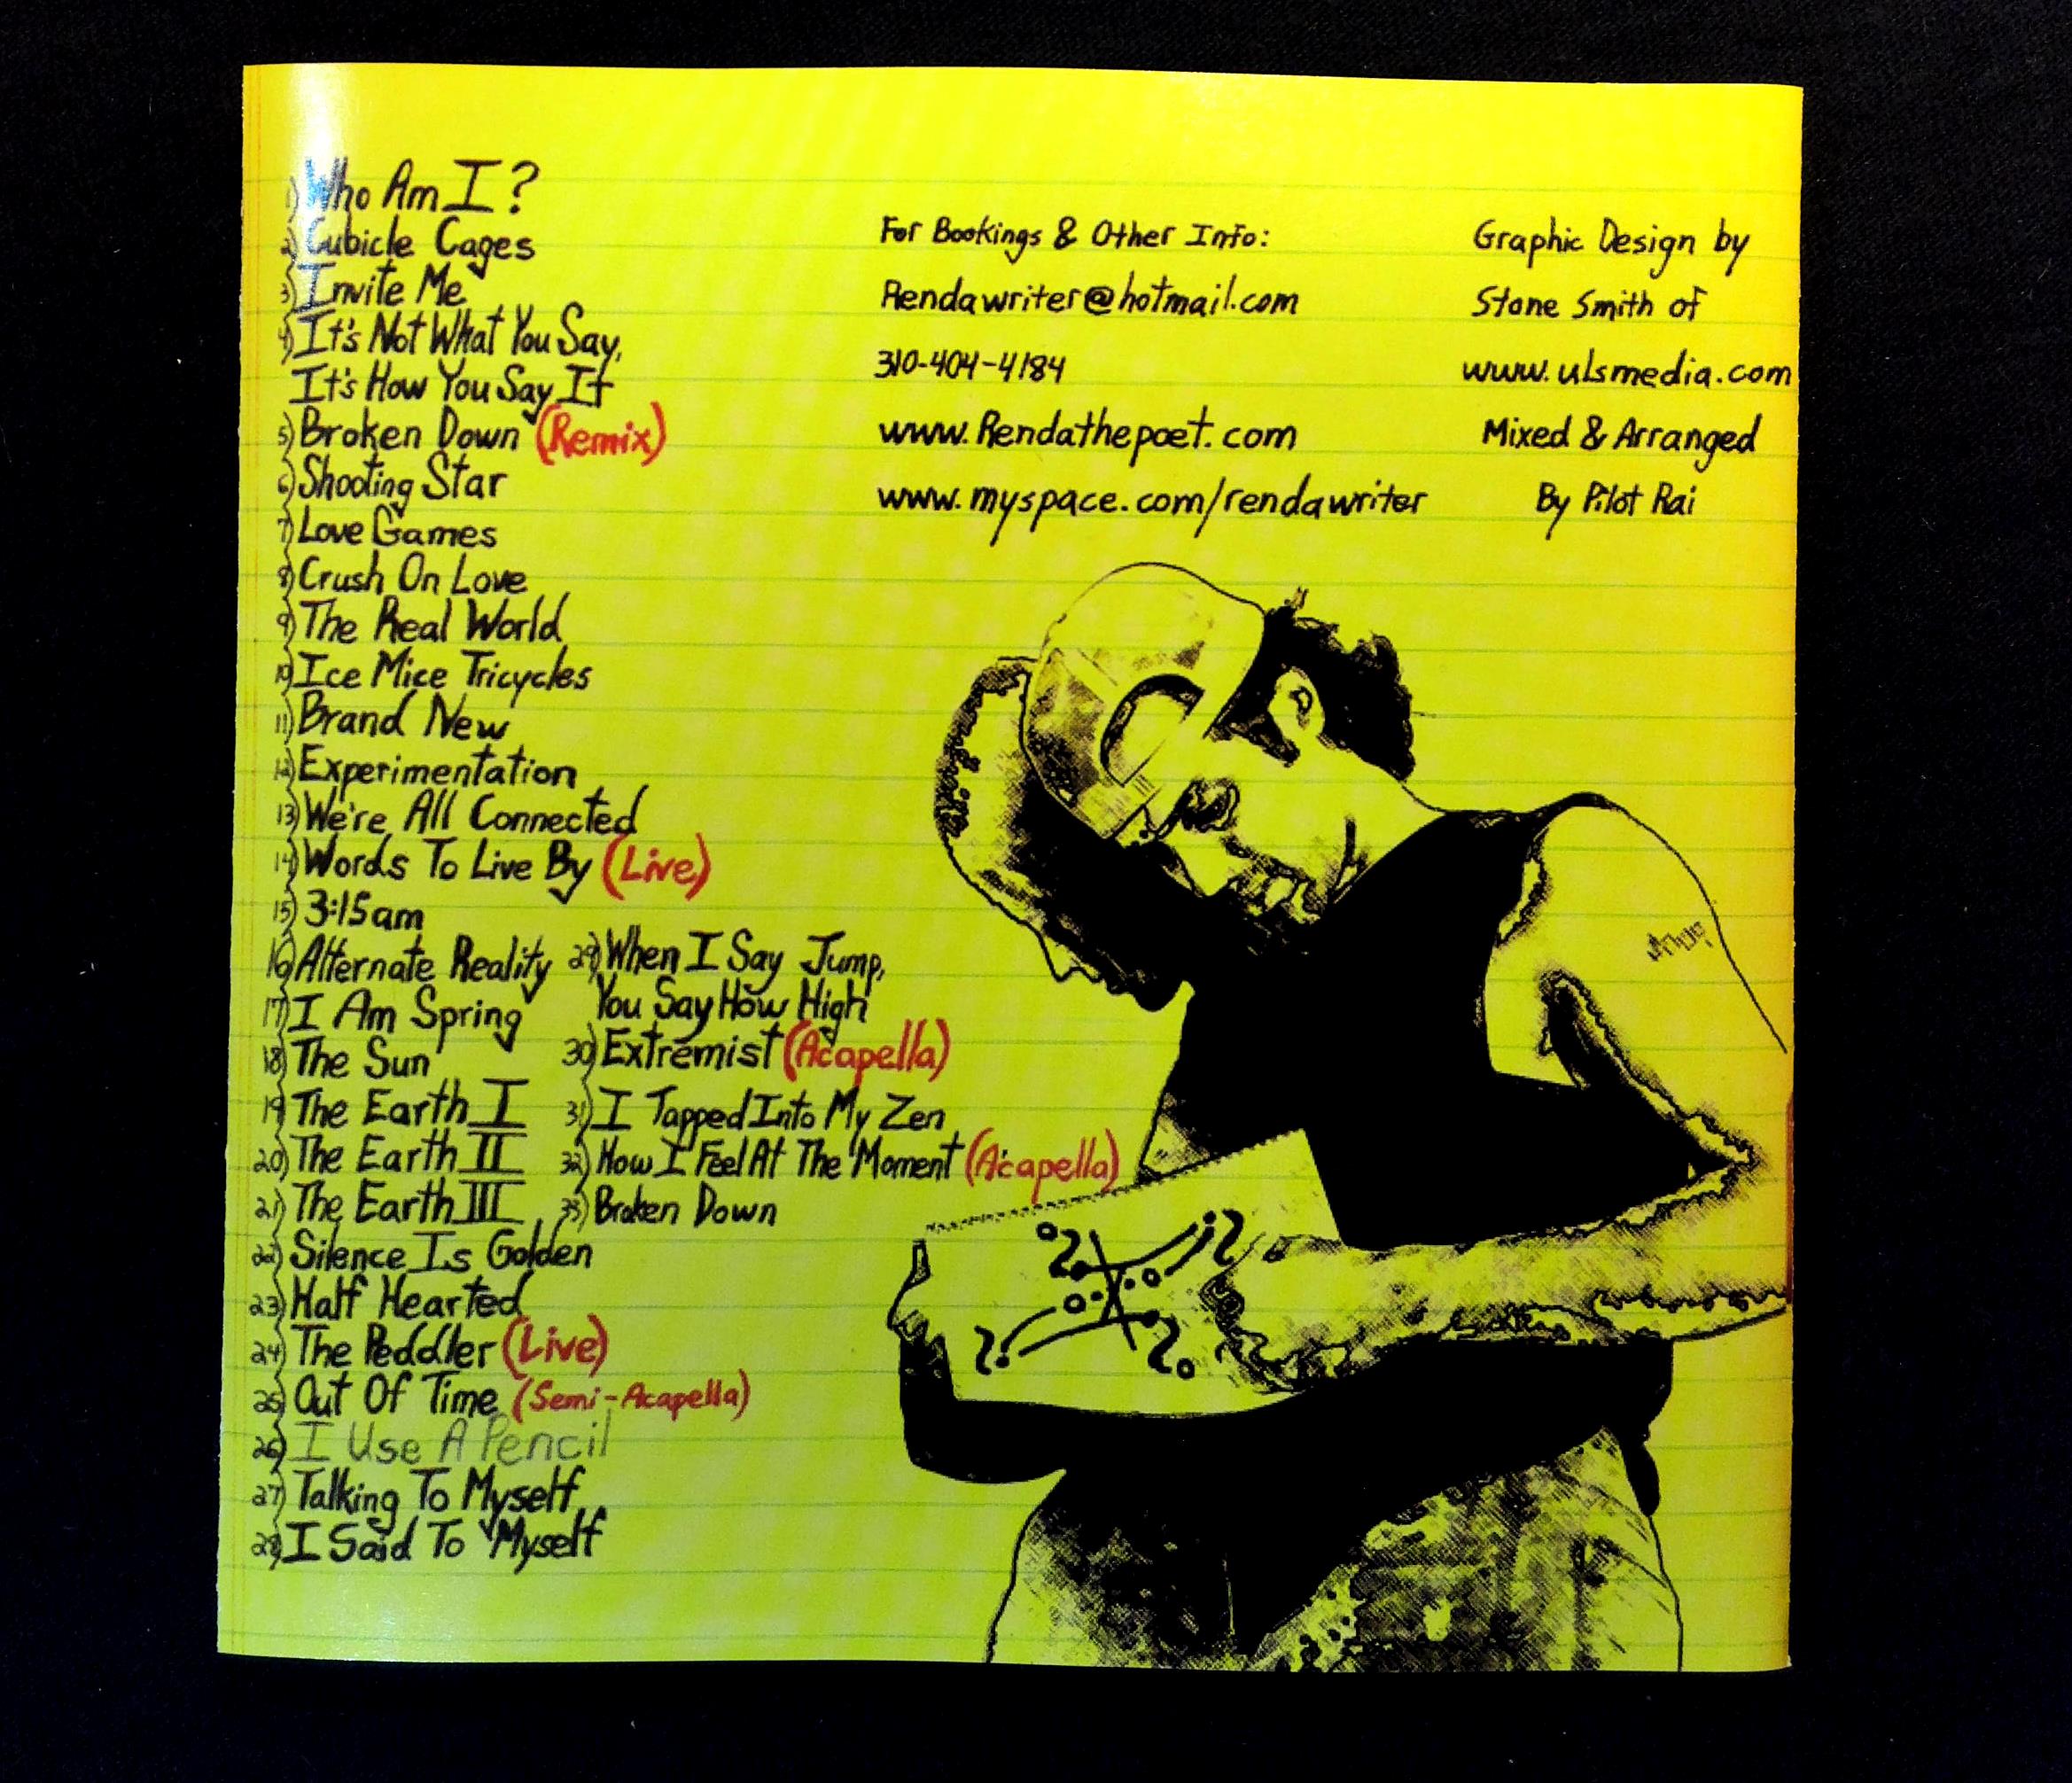 1) Who Am I?
2) Cubicle Cages
3) Invite Me
4) It's Not What You Say,
It's How You Say It
5) Broken Down (Remix)
6) Shooting Star
7) Love Games
8) Crush On Love
9) The Real World
10) Ice Mice Tricycles
11) Brand New
12) Experimentation
13) We're All Connected
14) Words To Live By (Live)
15) 3:15am
16) Alternate Reality
17) I Am Spring
18) The Sun
19) The Earth I
20) The Earth II
21) The Earth III
22) Silence Is Golden
23) Half Hearted
24) The Peddler (Live)
25) Out Of Time (Semi-Acapella)
26) I Use A Pencil
27) Talking To Myself
28) I Said To Myself
29) When I Say Jump,
You Say How High
30) Extremist (Acapella)
31) I Tapped Into My Zen
32) How I Feel At The Moment (Acapella)
33) Broken Down
For Bookings & Other Info:
Rendawriter@hotmail.com
310-404-4184
www.Rendathepoet.com
www.myspace.com/rendawriter
Graphic Design by
Stone Smith of
www.ulsmedia.com
Mixed & Arranged
By Pilot Rai
C